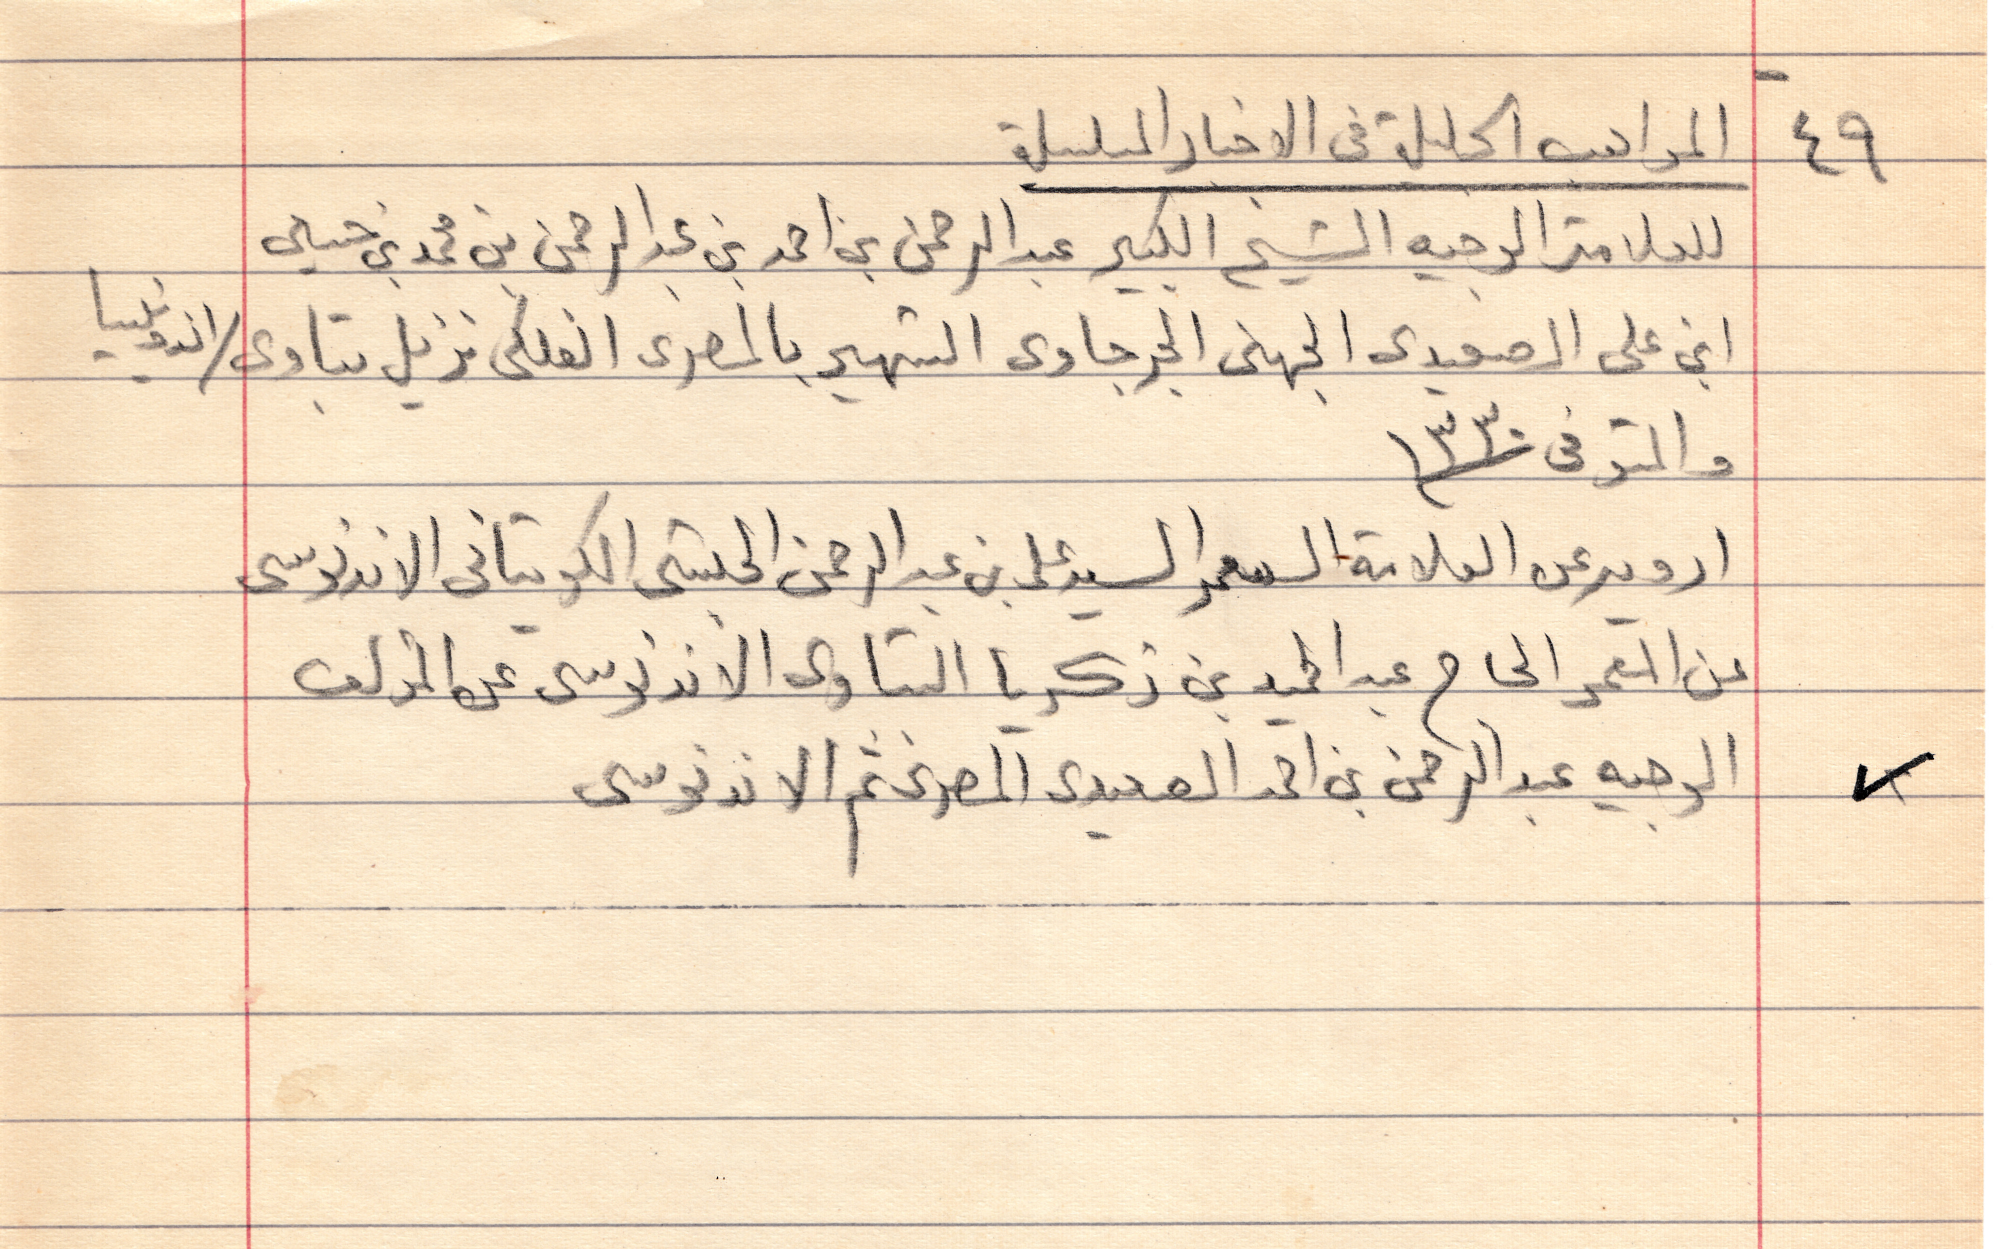 ٤٩ المواهب الجليلة فى الاخبار المسلسلة
للعلامة الوجيه الشيخ الكبير عبدالرحمن بن احمد بن عبدالرحمن بن محمد بن
ابن على الصعيدى الجهنى الجرجاوى الشهير بالمصرى الفلكى نزيل بتاوى/اندونيسيا
والمتوفى ١٣٣٠
ارويه عن العلامة المعمر السيد على بن عبدالرحمن الحبشى الكويتانى الاندنوسى
عن المعمر الحاج عبدالحميد بن زكريا البتاوى الاندنوسى عن المؤلف
الوجيه عبدالرحمن بن احمد الصعيدى المصرى ثم الاندنوسى